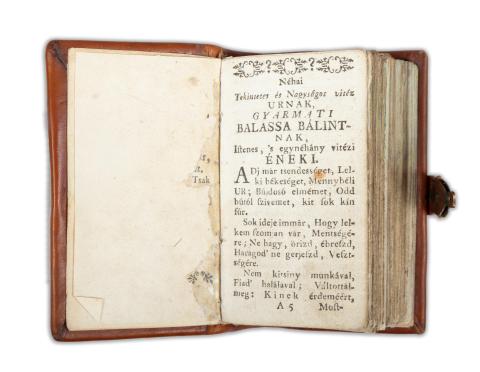 Néhai
Tekintetes és Nagyságos vitéz
URNAK,
GYARMATI
BALASSA BÁLINT-
NAK,
Istenes, 's egynéhány vitézi
ÉNEKI.
ADj már tsendességet, Lel-
ki békeséget, Mennybéli
UR; Bújdosó elmémet, Odd
bútól szivemet, kit sok kín
fúr.
Sok ideje immár, Hogy lel-
kem szomjan vár, Mentségé-
re; Ne hagy, örizd, ébreszd,
Haragod' ne gerjeszd, Veszt-
ségére.
Nem kitsiny munkával,
Fiad' halálával; Váltottál
meg: Kinek érdeméért,
A 5 Most-
Tsak